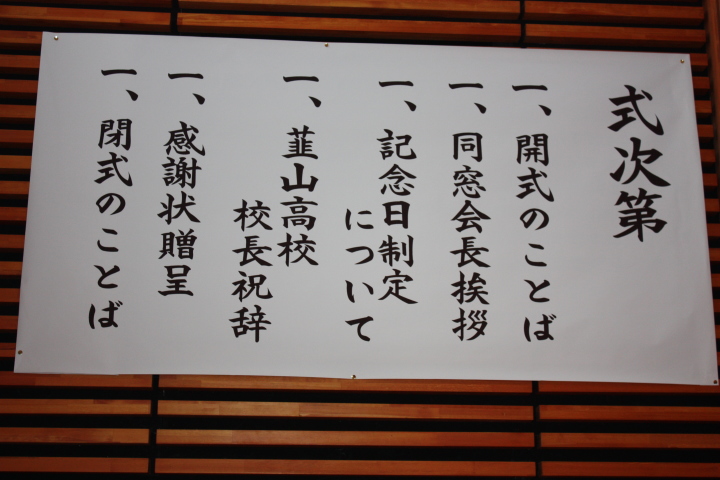 式次第
一、開式のことば
一、同窓会長挨拶
一、記念日制定
について
一、韮山高校
校長祝辞
一、感謝状贈呈
一、閉式のことば